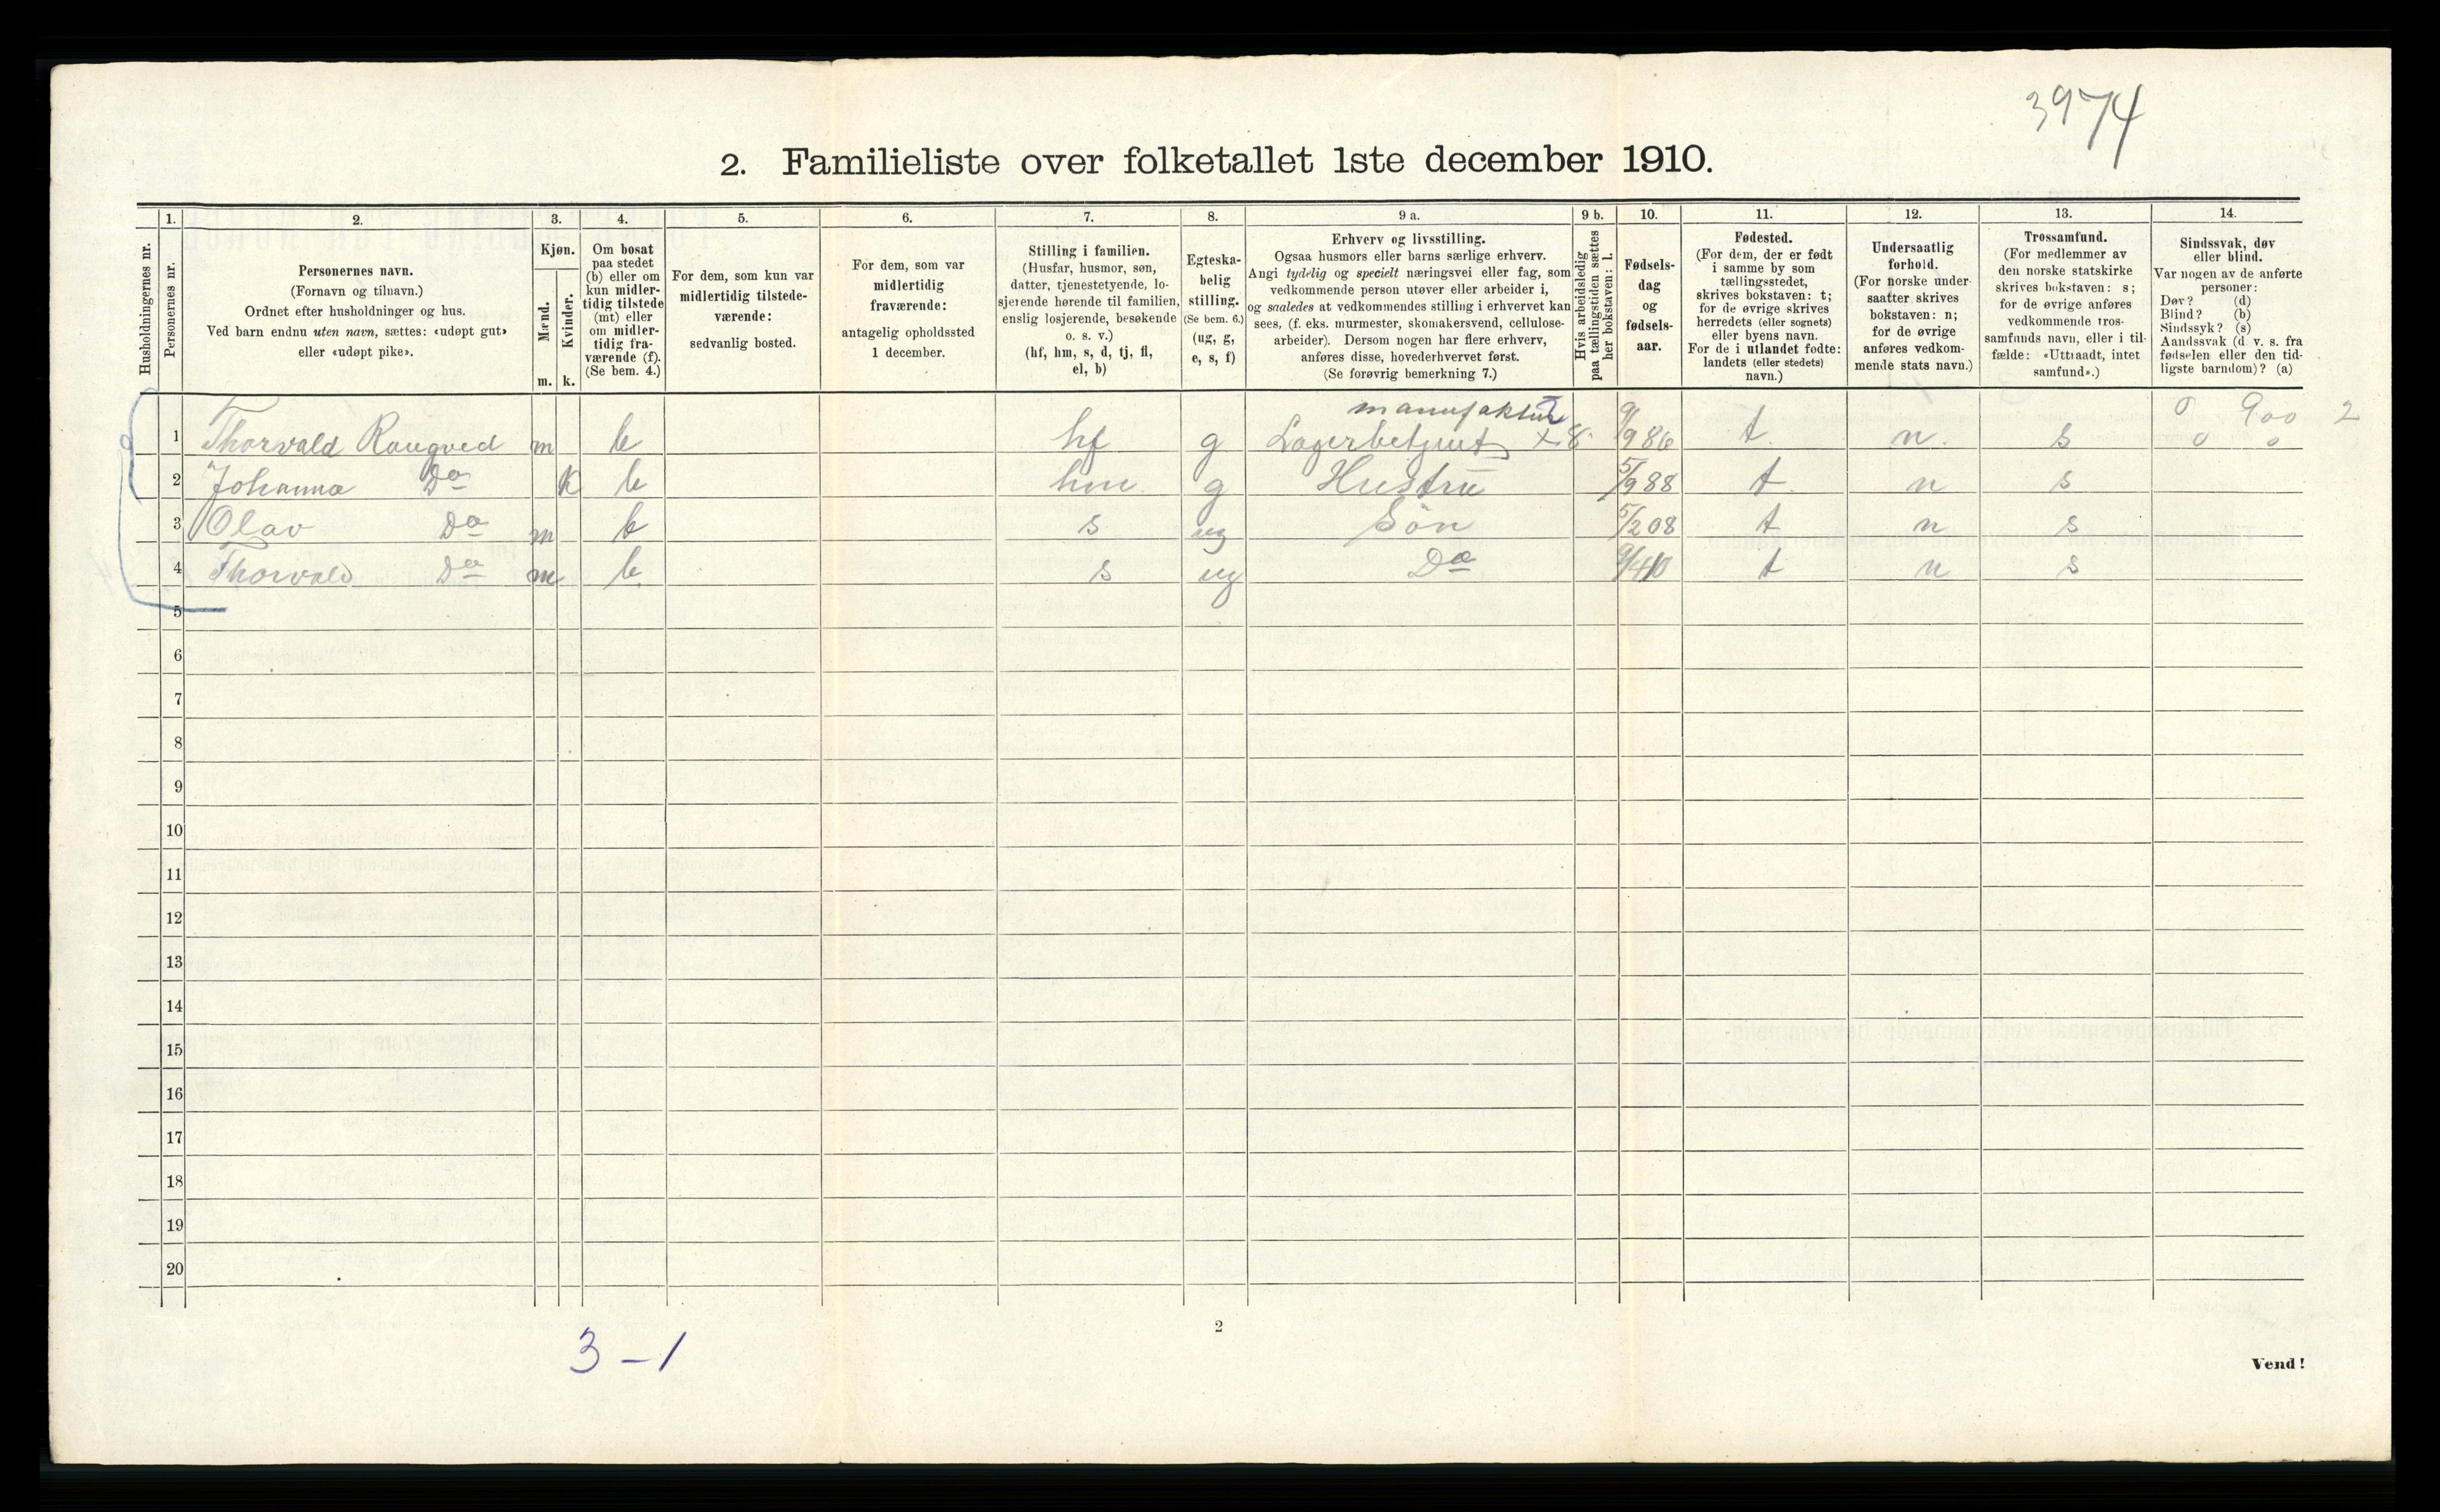 3974
2. Familieliste over folketallet 1ste december 1910.
Husholdningernes nr.
1.
Personernes nr.
2.
Personernes navn.
(Fornavn og tilnavn.)
Ordnet efter husholdninger og hus.
Ved barn endnu uten navn, sættes: «udøpt gut»
eller «udøpt pike».
3.
Kjøn.
Mænd.
m.
Kvinder.
k.
4.
Om bosat
paa stedet
(b) eller om
kun midler-
tidig tilstede
(mt) eller
om midler-
tidig fra-
værende (f).
(Se bem. 4.)
5.
For dem, som kun var
midlertidig tilstede-
værende:
sedvanlig bosted.
6.
For dem, som var
midlertidig
fraværende:
antagelig opholdssted
1 december.
7.
Stilling i familien.
(Husfar, husmor, søn,
datter, tjenestetyende, lo-
sjerende hørende til familien,
enslig losjerende, besøkende
o. s. v.)
(hf, hm, s, d, tj, fl,
el, b)
8.
Egteska-
belig
stilling.
(Se bem. 6.)
(ug, g,
e, s, f)
9 a.
Erhverv og livsstilling.
Ogsaa husmors eller barns særlige erhverv.
Angi tydelig og specielt næringsvei eller fag, som
vedkommende person utøver eller arbeider i,
og saaledes at vedkommendes stilling i erhvervet kan
sees, (f. eks. murmester, skomakersvend, cellulose-
arbeider). Dersom nogen har flere erhverv,
anføres disse, hovederhvervet først.
(Se forøvrig bemerkning 7.)
9 b.
Hvis arbeidsledig
paa tællingstiden sættes
her bokstaven: l.
10.
Fødsels-
dag
og
fødsels-
aar.
11.
Fødested.
(For dem, der er født
i samme by som
tællingsstedet,
skrives bokstaven: t;
for de øvrige skrives
herredets (eller sognets)
eller byens navn.
For de i utlandet fødte:
landets (eller stedets)
navn.)
12.
Undersaatlig
forhold.
(For norske under-
saatter skrives
bokstaven: n;
for de øvrige
anføres vedkom-
mende stats navn.)
13.
Trossamfund.
(For medlemmer av
den norske statskirke
skrives bokstaven: s;
for de øvrige anføres
vedkommende tros-
samfunds navn, eller i til-
fælde: «Uttraadt, intet
samfund».)
14.
Sindssvak, døv
eller blind.
Var nogen av de anførte
personer:
Døv? (d)
Blind? (b)
Sindssyk? (s)
Aandssvak (d. v. s. fra
fødselen eller den tid-
ligste barndom)? (a)
manufaktur 0 900 2
1 Thorvald Raugved m b hf g Lagerbetjent x 8 9/9 86 t. n. s 0 0
2 Johanna Do K b hm g Hustru 5/9 88 t. n s
3 Olav Do m b s ug Søn 5/2 08 t n s
4 Thorvald Do m b s ug Do 9/4 10 t n s
5
6
7
8
9
10
11
12
13
14
15
16
17
18
19
20
3 - 1
2
Vend!